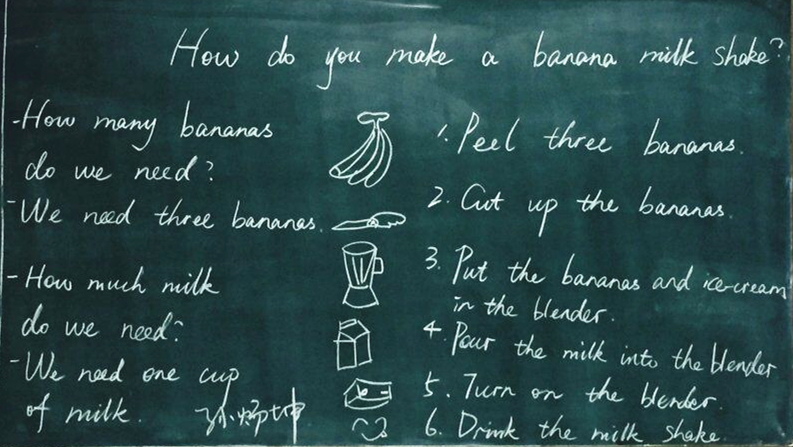 How do you make a banana milk shake?
-How many bananas
do we need?
-We need three bananas.
-How much milk
do we need?
-We need one cup
of milk.
1. Peel three bananas.
2. Cut up the bananas.
3. Put the bananas and ice-cream
in the blender.
4. Pour the milk into the blender
5. Turn on the blender.
6. Drink the milk shake